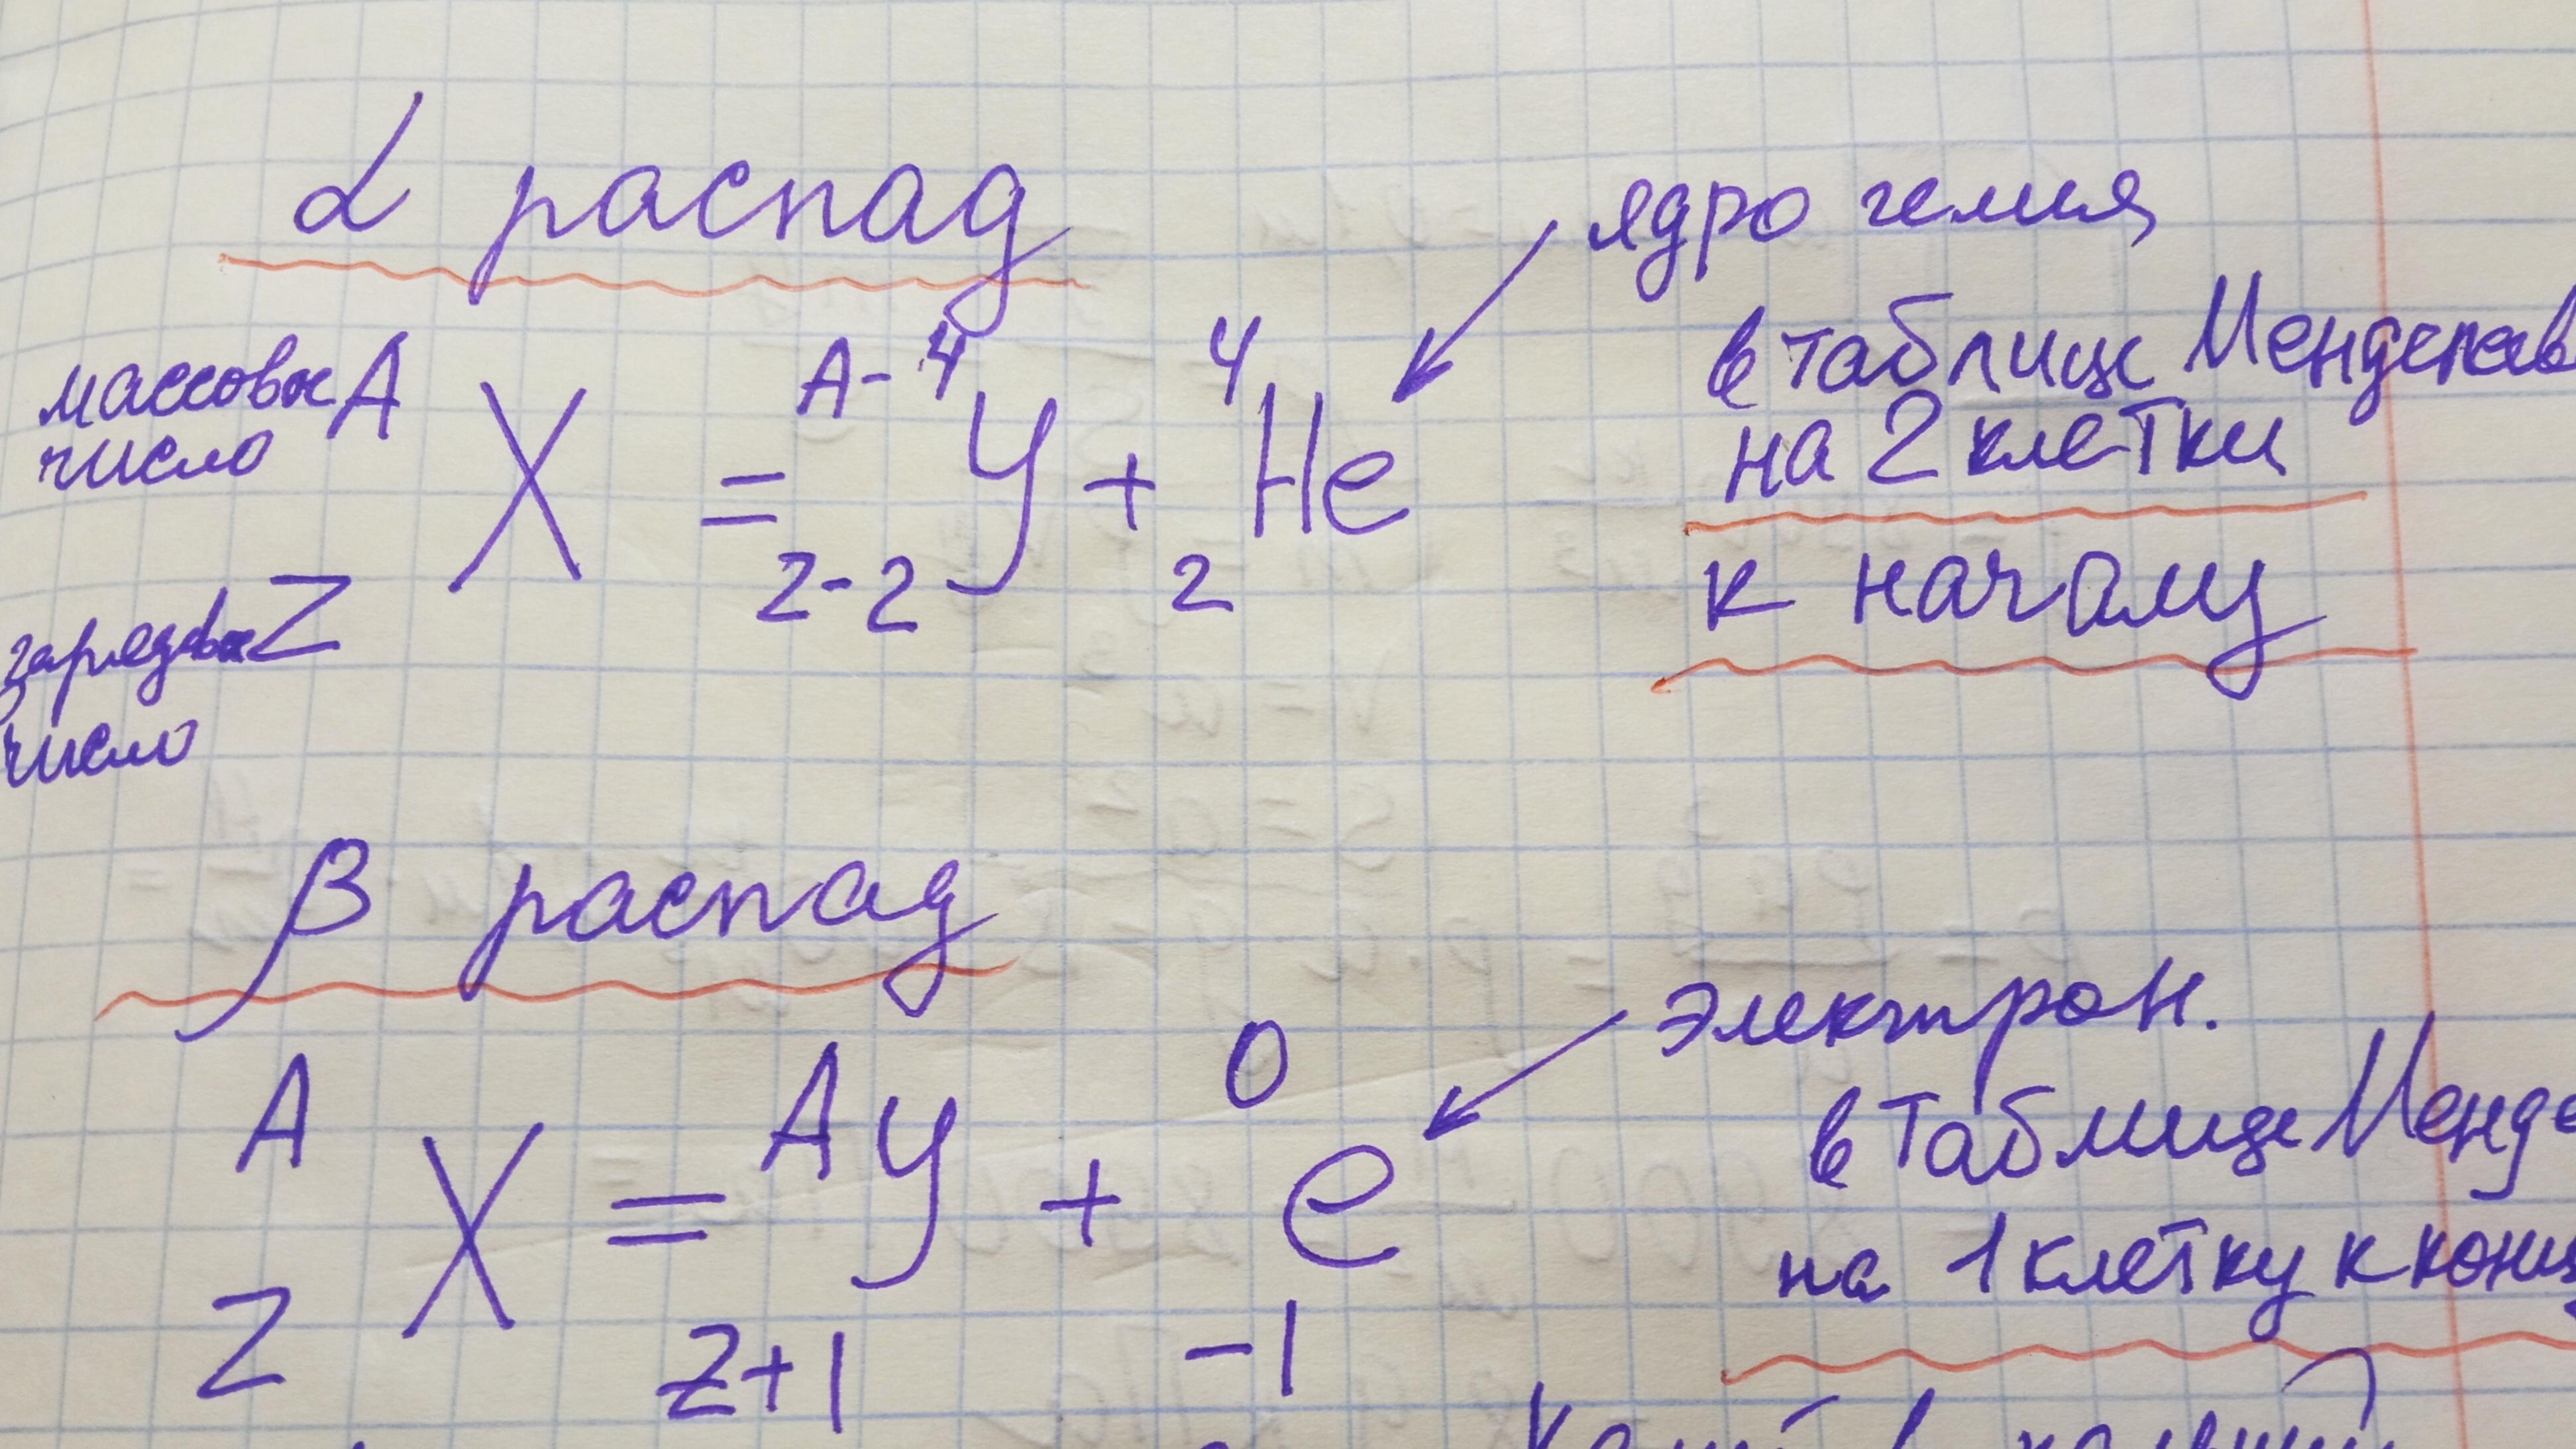 α распад
ядро гелия
массовое A X = A-4 Y + 4 He
число
Z Z-2 2
зарядовое
число
в таблице Менделеев
на 2 клетки
к началу
β распад
электрон.
A X = A Y + 0 e
Z Z+1 -1
в таблице Менде
на 1 клетку к конц